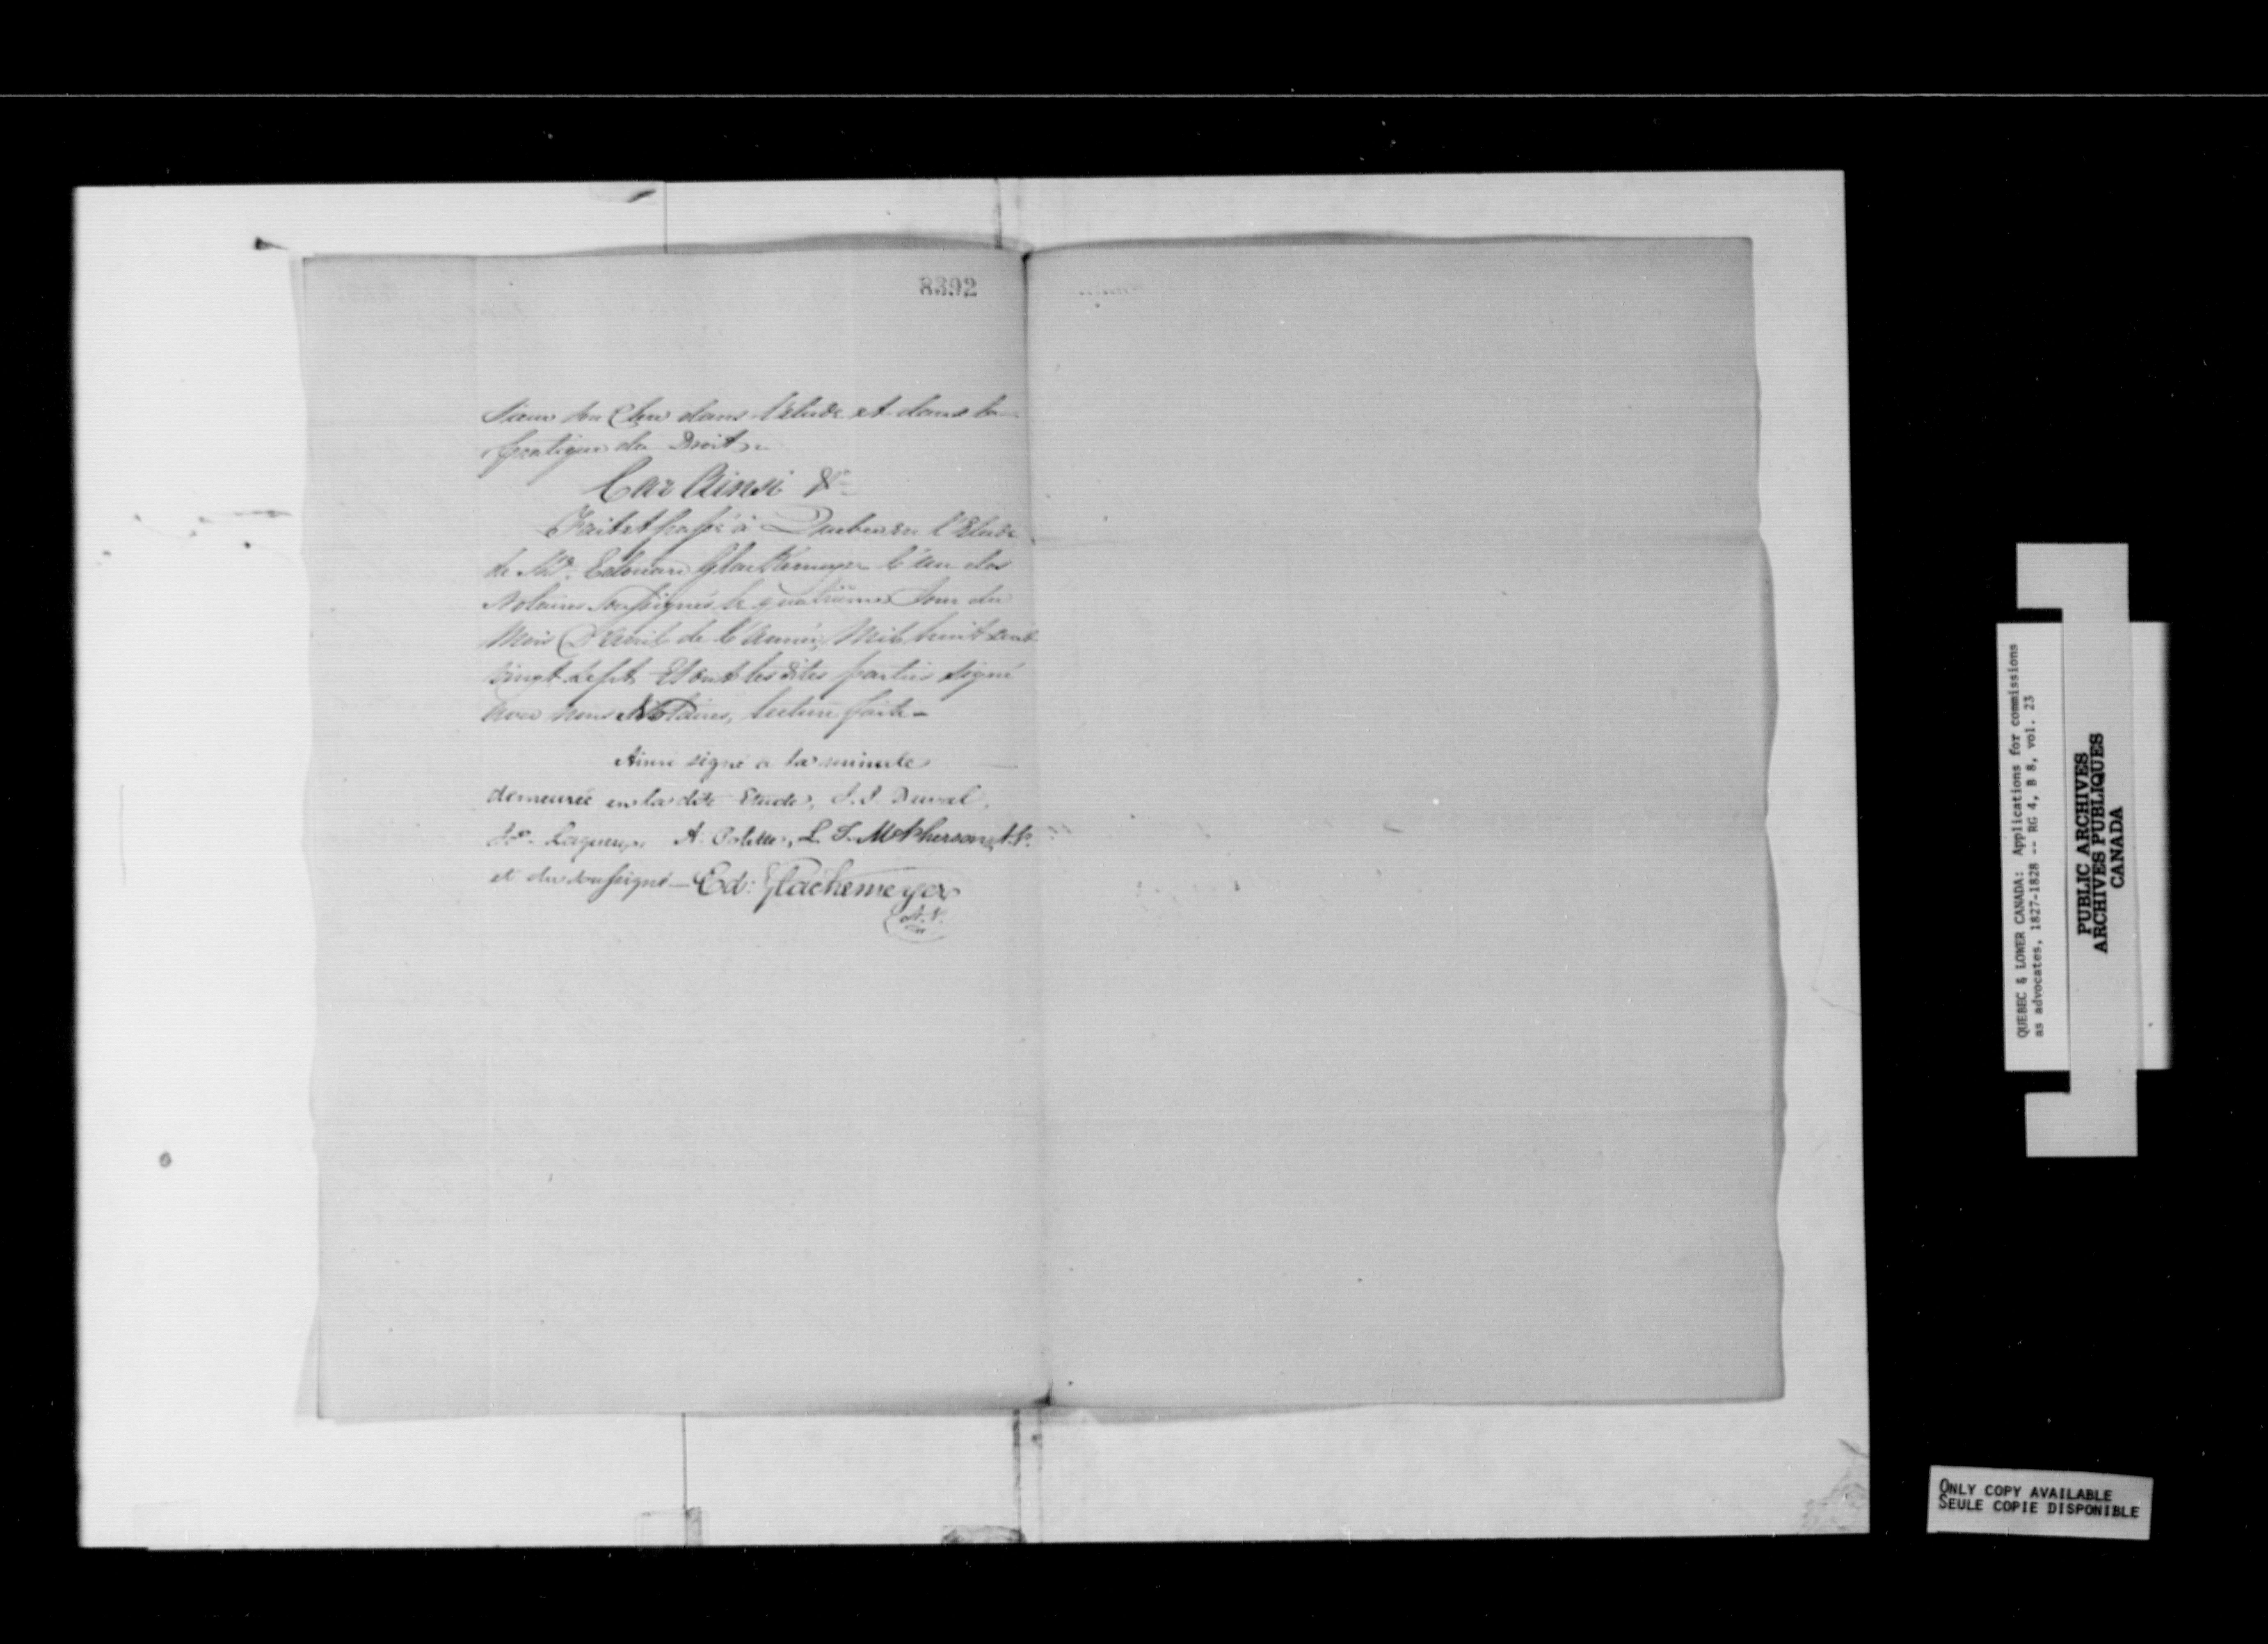 8392
Sieur son Clerc dans l'etude et dans la
pratique du Droit.
Car Ainsi &c
Fait et passé à Quebec en l'Etude
de Mre. Edouard Glackemeyer l'un des
Notaires Soussignés le quatrième Jour du
Mois D'Avril de l'Année Mil huit cent
vingt sept Et ont les dites parties signé
avec nous Notaires, lecture faite -
Ainsi signé a la minute
demeurée en la dite Etude, Duval,
A. Polette, L. T. McPherson, N.P.
et du soussigné - Ed: Glackemeyer
N.P.
QUEBEC & LOWER CANADA: Applications for commissions
as advocates, 1827-1828 -- RG 4, B 8, vol. 23
PUBLIC ARCHIVES
ARCHIVES PUBLIQUES
CANADA
ONLY COPY AVAILABLE
SEULE COPIE DISPONIBLE